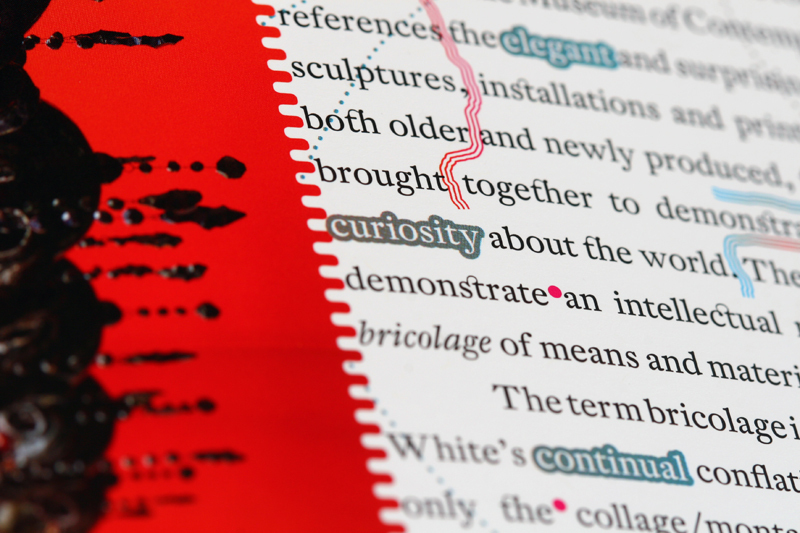 Museum of Contemp
references the elegant and surprising
sculptures, installations and print
both older and newly produced,
brought together to demonstra
curiosity about the world. The
demonstrate an intellectual
bricolage of means and materi
The term bricolage i
White's continual conflat
only the collage/monta